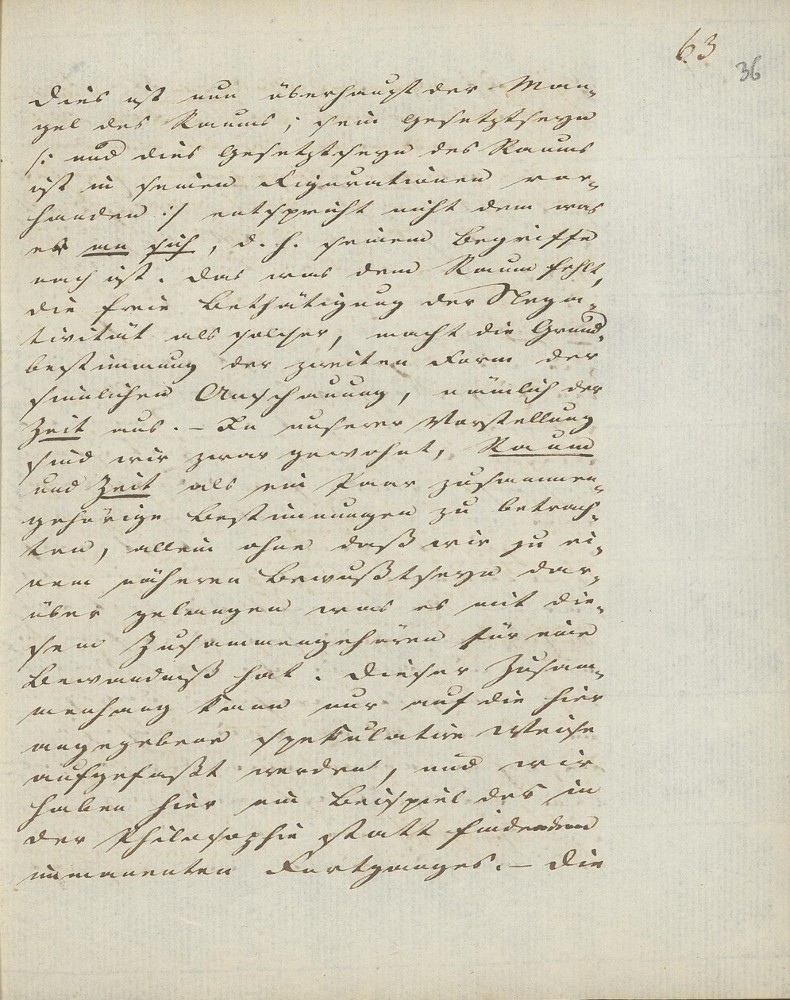 63
36
Dies ist nun überhaupt der Man-
gel des Raums; sein Gesetztseyn
/: und dies Gesetztseyn des Raums
ist in seinen Figurationen vor-
handen :/ entspricht nicht dem was
er an sich, d. h. seinem Begriffe
nach ist. Das was dem Raum fehlt,
die freie Bethätigung der Nega-
tivität als solcher, macht die Grund-
bestimmung der zweiten Form der
sinnlichen Anschauung, nämlich der
Zeit aus. – In unserer Vorstellung
sind wir zwar gewohnt, Raum
und Zeit als ein Paar zusammen-
gehörige Bestimmungen zu betrach-
ten, allein ohne daß wir zu ei-
nem näheren Bewußtseyn dar-
über gelangen was es mit die-
sem Zusammengehören für eine
Bewandniß hat. Dieser Zusam-
menhang kann nur auf die hier
angegebene spekulative Weise
aufgefaßt werden, und wir
haben hier ein Beispiel des in
der Philosophie statt findenden
immanenten Fortganges. – Die